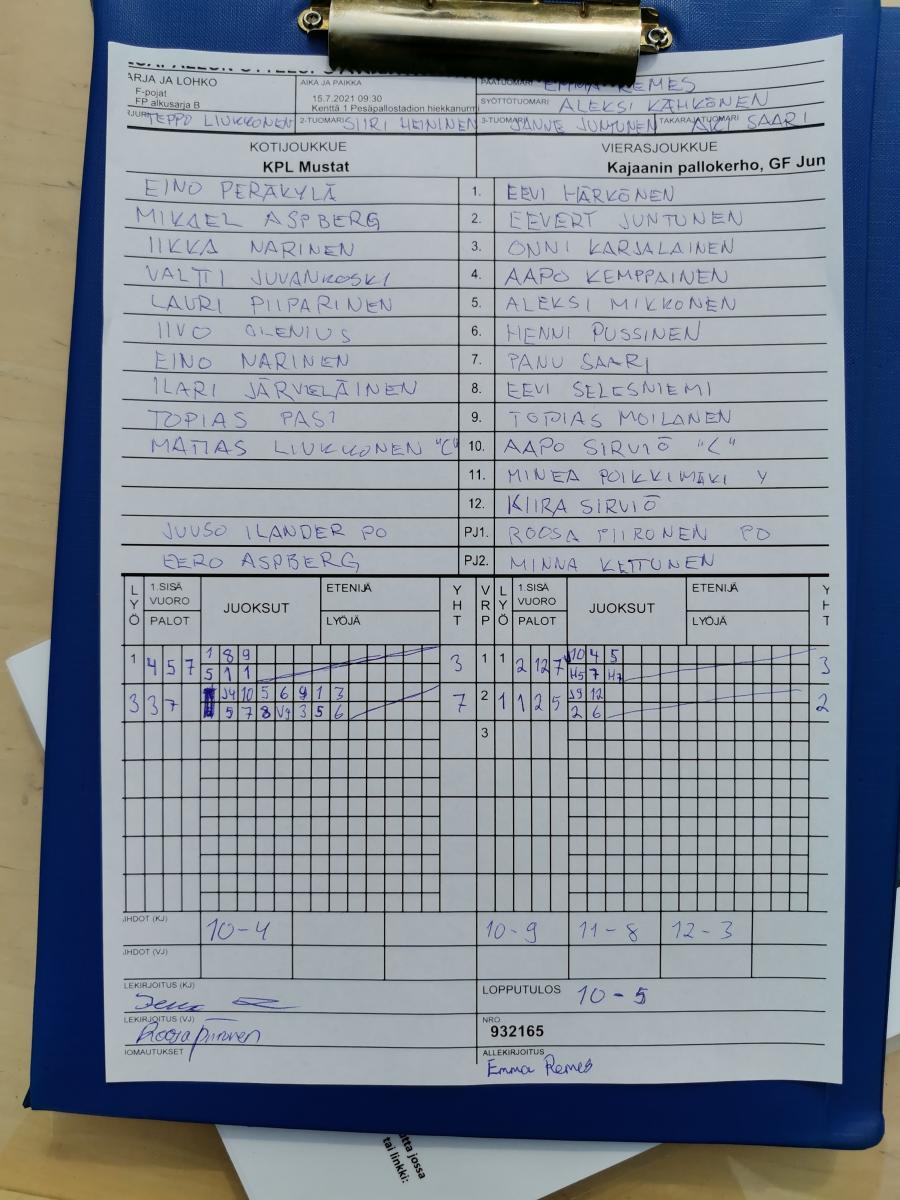 ARJA JA LOHKO AIKA JA PAIKKA PÄÄTUOMARI EMMA REMES
F-pojat 15.7.2021 09:30 SYÖTTÖTUOMARI ALEKSI KÄHKÖNEN
FP alkusarja B Kenttä 1 Pesäpallostadion hiekkanurmi
TEPPO LIUKKONEN 2-TUOMARI SIIRI HEININEN 3-TUOMARI JANNE JUNTUNEN TAKARAJATUOMARI AKI SAARI
KOTIJOUKKUE VIERASJOUKKUE
KPL Mustat Kajaanin pallokerho, GF Jun
EINO PERÄKYLÄ 1. EEVI HÄRKÖNEN
MIKAEL ASPBERG 2. EEVERT JUNTUNEN
IIKKA NARINEN 3. ONNI KARJALAINEN
VALTTI JUVANKOSKI 4. AAPO KEMPPAINEN
LAURI PIIPARINEN 5. ALEKSI MIKKONEN
IIVO OLENIUS 6. HENNI PUSSINEN
EINO NARINEN 7. PANU SAARI
ILARI JÄRVELÄINEN 8. EEVI SELESNIEMI
TOPIAS PASI 9. TOPIAS MOILANEN
MATIAS LIUKKONEN "C" 10. AAPO SIRVIÖ "C"
11. MINEA POIKKIMÄKI Y
12. KIIRA SIRVIÖ
JUUSO ILANDER PO PJ1. ROOSA PIIRONEN PO
EERO ASPBERG PJ2. MINNA KETTUNEN
LYÖ 1.SISÄ VUORO PALOT JUOKSUT ETENIJÄ LYÖJÄ YHT VRP LYÖ 1.SISÄ VUORO PALOT JUOKSUT ETENIJÄ LYÖJÄ YHT
1 4 5 7 1 8 9 3 1 1 2 12 7 10 4 5 3
5 1 1 H5 7 H7
3 3 7 J4 10 5 6 9 1 3 7 2 1 1 2 5 J9 12 2
5 7 8 V9 3 5 6 2 6
3
JHDOT (KJ) 10-4 10-9 11-8 12-3
JHDOT (VJ)
LEKIRJOITUS (KJ) LOPPUTULOS 10-5
LEKIRJOITUS (VJ) Roosa Piironen NRO 932165
IOMAUTUKSET ALLEKIRJOITUS Emma Remes
tta jossa
tai linkki: